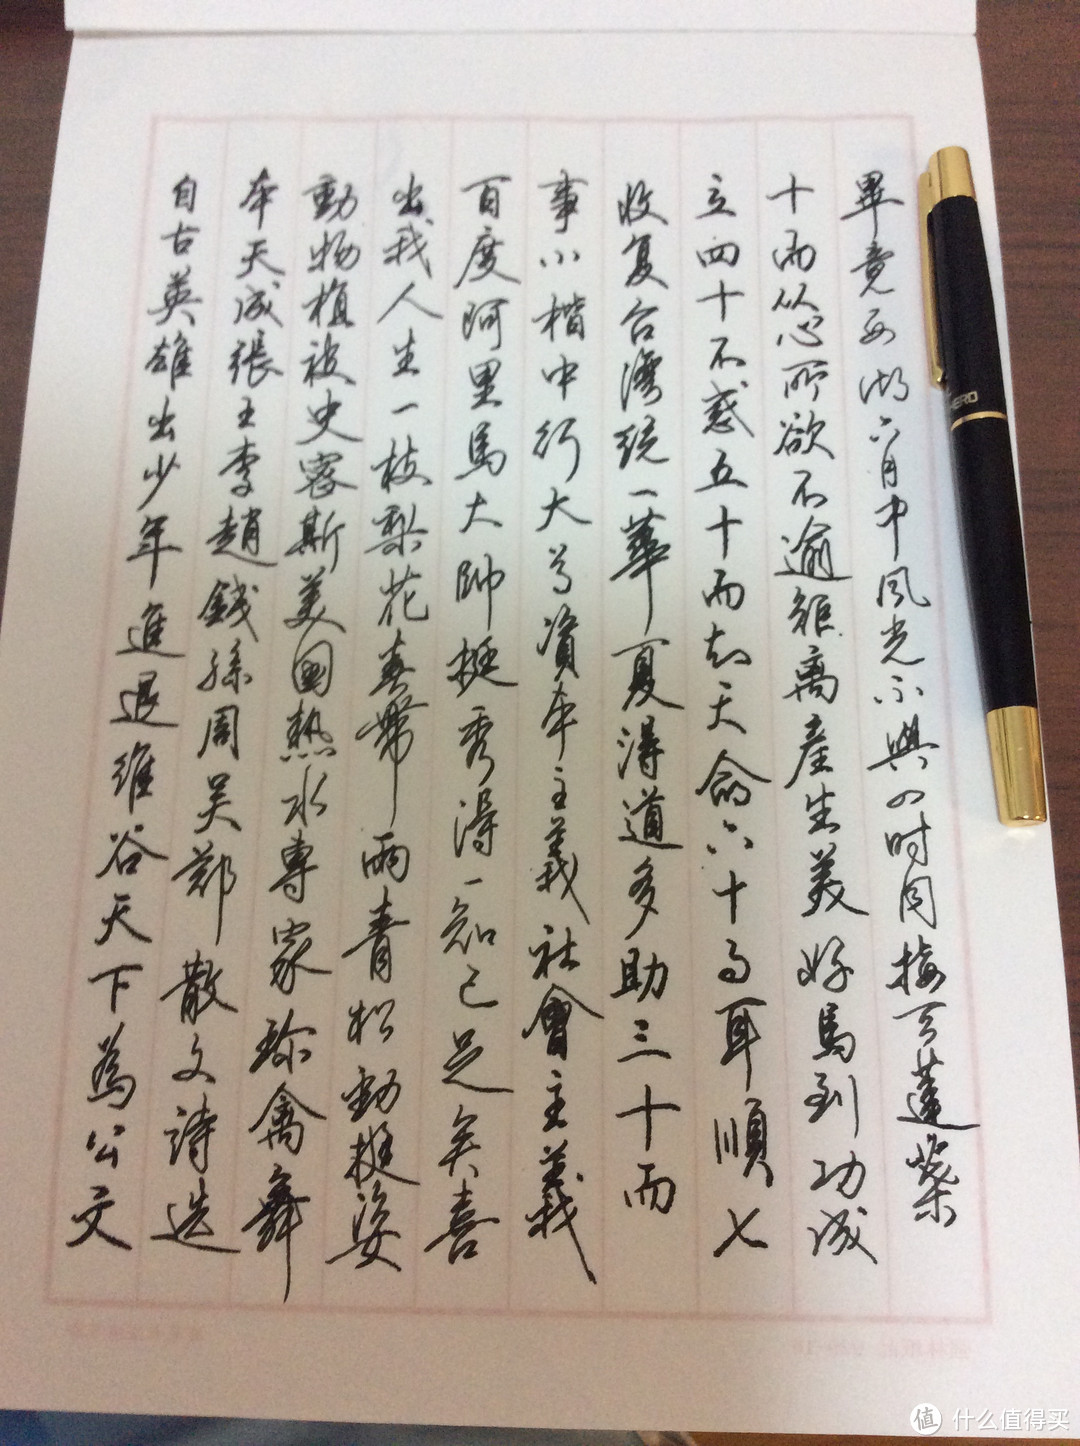 畢竟西湖六月中風光不與四時同接天蓬柴
十而从心所欲不逾矩离產生美好馬到功成
立四十不惑五十而知天命六十而耳順七
收复台灣統一華夏得道多助三十而
事小楷中行大草資本主義社會主義
百度阿里馬大帥挺秀得一知己足矣喜
出我人生一枝梨花春帶雨青松勁挺姿
動物植被史密斯美國熱水專家珍禽舞
本天成張王李趙錢孫周吴郑散文詩选
自古英雄出少年進退維谷天下為公文
HERO
值 什么值得买